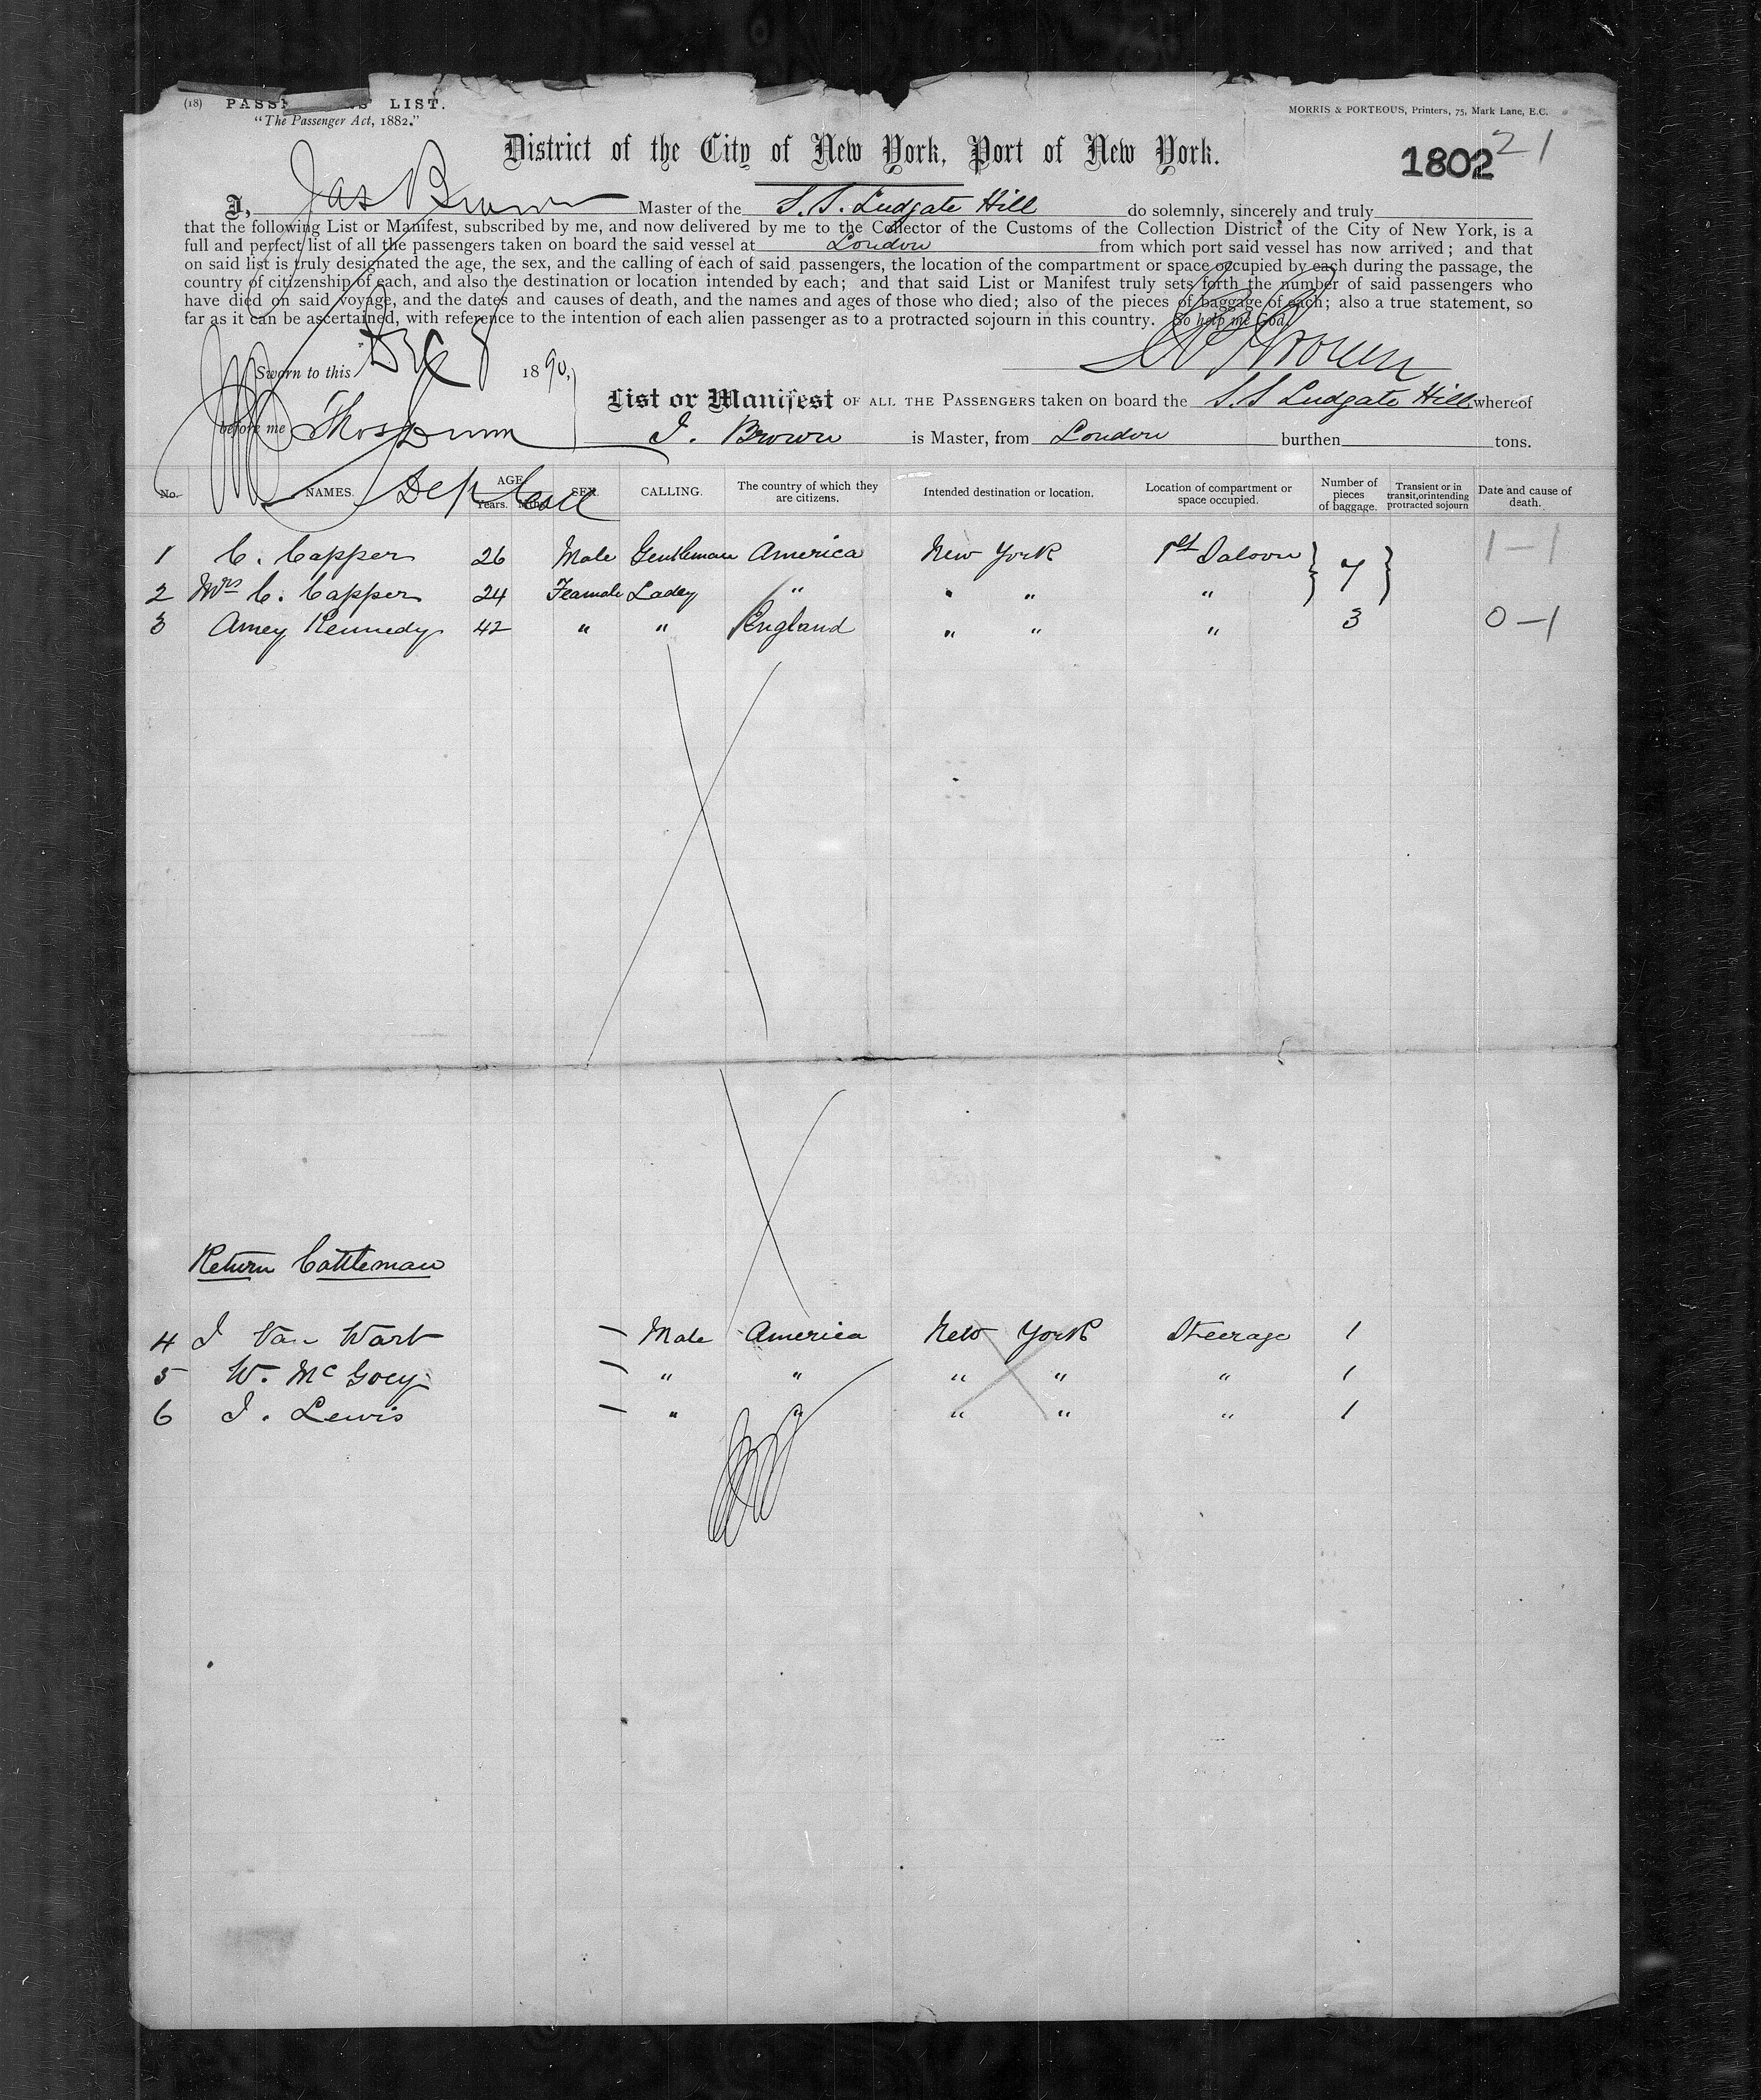 (18) PASSENGERS' LIST.
"The Passenger Act, 1882."
MORRIS & PORTEOUS, Printers, 75, Mark Lane, E.C.
District of the City of New York, Port of New York.
1802 21
I, Jas Brown Master of the S.S. Ludgate Hill do solemnly, sincerely and truly
that the following List or Manifest, subscribed by me, and now delivered by me to the Collector of the Customs of the Collection District of the City of New York, is a
full and perfect list of all the passengers taken on board the said vessel at London from which port said vessel has now arrived; and that
on said list is truly designated the age, the sex, and the calling of each of said passengers, the location of the compartment or space occupied by each during the passage, the
country of citizenship of each, and also the destination or location intended by each; and that said List or Manifest truly sets forth the number of said passengers who
have died on said voyage, and the dates and causes of death, and the names and ages of those who died; also of the pieces of baggage of each; also a true statement, so
far as it can be ascertained, with reference to the intention of each alien passenger as to a protracted sojourn in this country. So help me God.
Brown
Sworn to this Dec 8 1890,
List or Manifest OF ALL THE PASSENGERS taken on board the S.S Ludgate Hill whereof
before me Thos Dunn
I. Brown is Master, from London burthen tons.
Dep Coll
No. NAMES. AGE Years. Mths. SEX. CALLING. The country of which they are citizens. Intended destination or location. Location of compartment or space occupied. Number of pieces of baggage. Transient or in transit, or intending protracted sojourn Date and cause of death.
1 C. Capper 26 Male Gentleman America New York 1st Saloon } 7 } 1 – 1
2 Mrs C. Capper 24 Feamale Ladey " " " "
3 Amey Kennedy 42 " " England " " " 3 0 – 1
Return Cattleman
4 J Van Wart – Male America New York Steerage 1
5 W. McGoey – " " " " " 1
6 J. Lewis – " " " " " 1